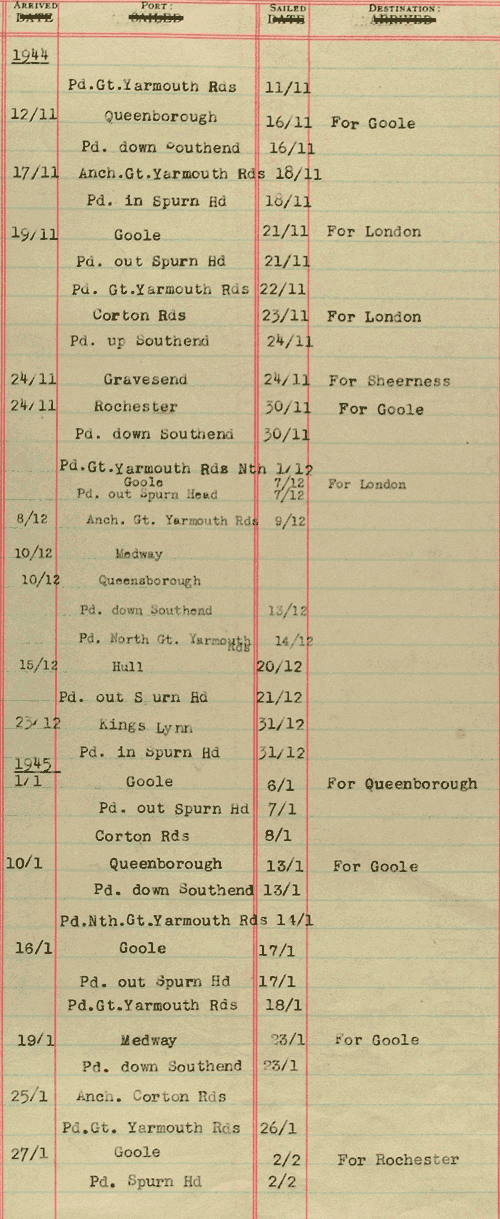 ARRIVED PORT: SAILED DESTINATION:
DATE SAILED DATE ARRIVED
1944
Pd.Gt.Yarmouth Rds 11/11
12/11 Queenborough 16/11 For Goole
Pd. down Southend 16/11
17/11 Anch.Gt.Yarmouth Rds 18/11
Pd. in Spurn Hd 18/11
19/11 Goole 21/11 For London
Pd. out Spurn Hd 21/11
Pd. Gt.Yarmouth Rds 22/11
Corton Rds 23/11 For London
Pd. up Southend 24/11
24/11 Gravesend 24/11 For Sheerness
24/11 Rochester 30/11 For Goole
Pd. down Southend 30/11
Pd.Gt.Yarmouth Rds Nth 1/12
Goole 7/12 For London
Pd. out Spurn Head 7/12
8/12 Anch. Gt. Yarmouth Rds 9/12
10/12 Medway
10/12 Queensborough
Pd. down Southend 13/12
Pd. North Gt. Yarmouth Rds 14/12
15/12 Hull 20/12
Pd. out S urn Hd 21/12
23/12 Kings Lynn 31/12
Pd. in Spurn Hd 31/12
1945
1/1 Goole 6/1 For Queenborough
Pd. out Spurn Hd 7/1
Corton Rds 8/1
10/1 Queenborough 13/1 For Goole
Pd. down Southend 13/1
Pd.Nth.Gt.Yarmouth Rds 14/1
16/1 Goole 17/1
Pd. out Spurn Hd 17/1
Pd.Gt.Yarmouth Rds 18/1
19/1 Medway 23/1 For Goole
Pd. down Southend 23/1
25/1 Anch. Corton Rds
Pd.Gt. Yarmouth Rds 26/1
27/1 Goole 2/2 For Rochester
Pd. Spurn Hd 2/2